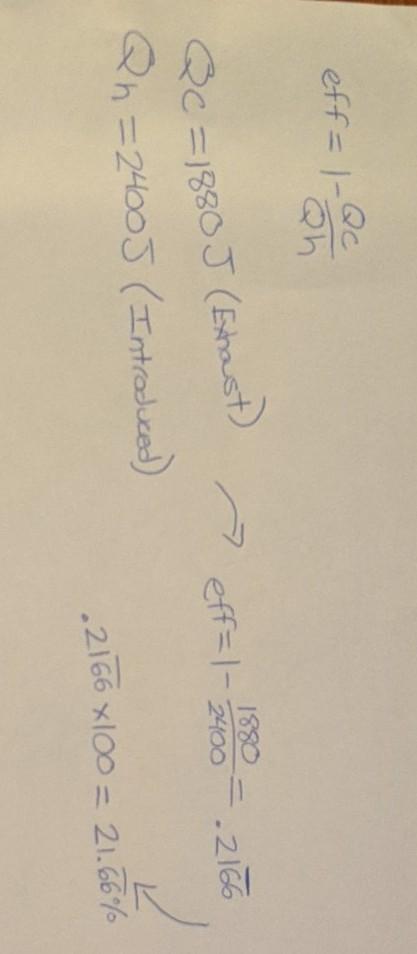 eff = 1 - Qc/Qh
Qc = 1880J (Exhaust)
Qh = 2400J (Introduced)
→ eff = 1 - 1880/2400 = .216̅6̅
.216̅6̅ x 100 = 21.6̅6̅%